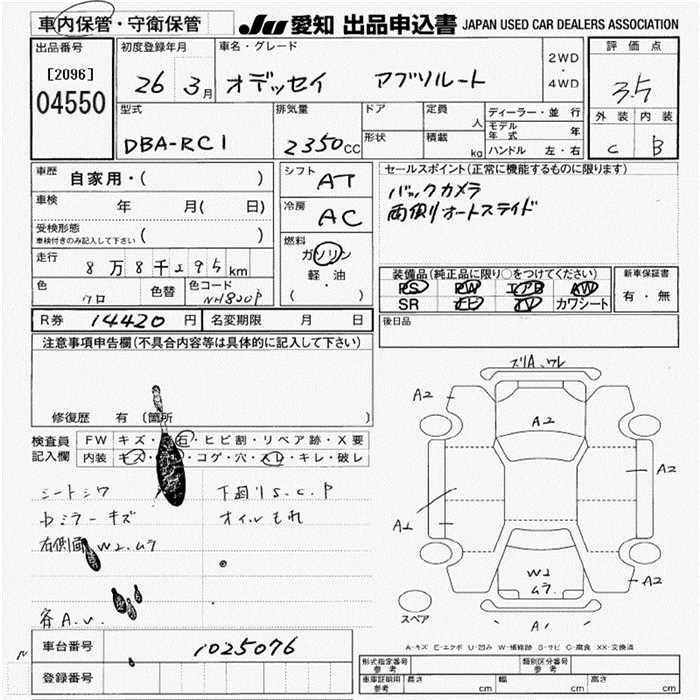 車内保管・守衛保管
JU 愛知 出品申込書 JAPAN USED CAR DEALERS ASSOCIATION
出品番号
[2096]
04550
初度登録年月
26 3月
車名・グレード
オデッセイ アブソルート
2WD
・
4WD
評価点
3.5
外装 内装
C B
型式
DBA-RC1
排気量
2350cc
ドア
形状
定員
人
積載
kg
ディーラー・並行
モデル年式 年
ハンドル 左・右
車歴 自家用・( )
車検 年 月( 日)
受検形態
車検付きのみ記入して下さい ( )
走行 8万8千295km
色 クロ
色替
色コード NH820P
シフト AT
冷房 AC
燃料
ガソリン
軽油
( ・ )
セールスポイント(正常に機能するものに限ります)
バックカメラ
両側オートスライド
装備品(純正品に限り○をつけてください)
PS PW エアB AW
SR ナビ TV カワシート
新車保証書
有・無
後日品
R券 14420円
名変期限 月 日
注意事項申告欄(不具合内容等は具体的に記入して下さい)
修復歴 有(箇所 )
検査員
記入欄
FW キズ・石・ヒビ割・リペア跡・X要
内装 キズ・コゲ・穴・スレ・キレ・破レ
シートシワ
下廻りS.C.P
ドミラーキズ
オイルもれ
右側面 W2.ムラ
各A.U.
車台番号 1025076
登録番号
ズリA、ワレ
A2
A2
A2
A1
W2
ムラ
A2
A1
スペア
A-キズ E-エクボ U-凹み W-補修跡 S-サビ C-腐食 XX-交換済
形式指定番号
参考
類別区分番号
参考
車庫証明用
参考
長さ cm 幅 cm 高さ cm